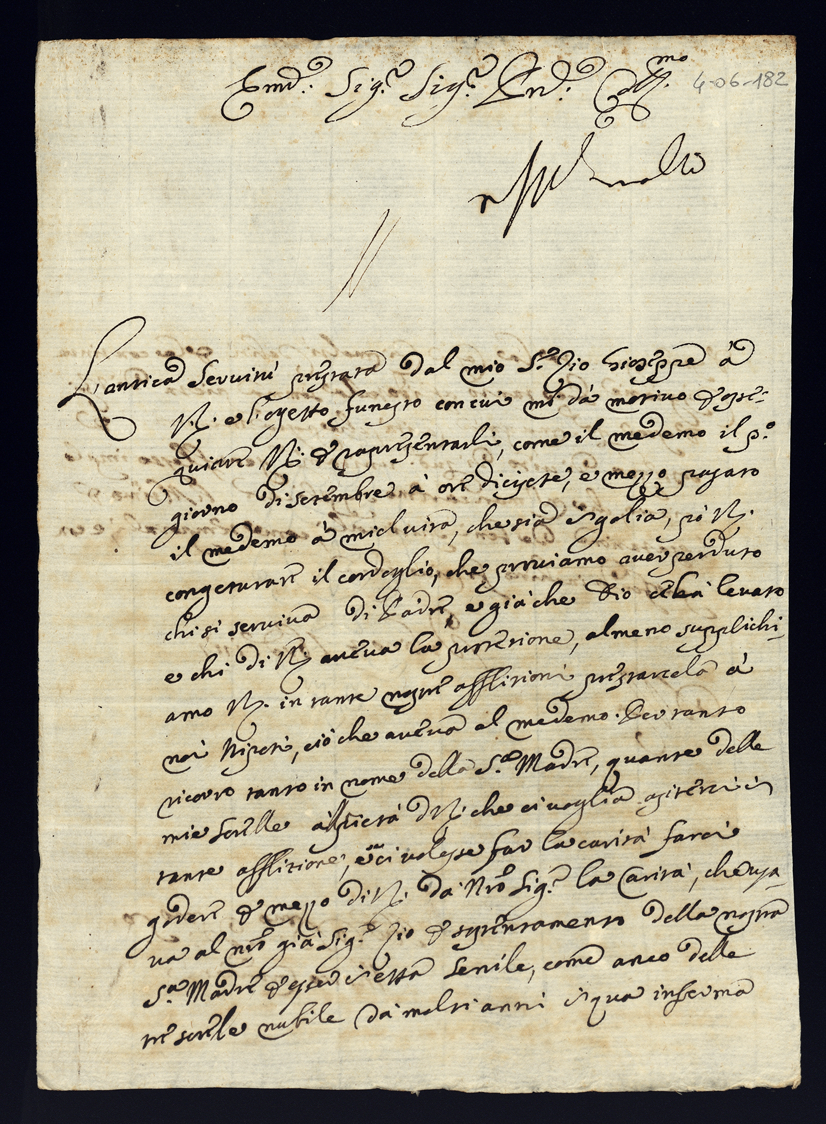 Em.do Sig.r Sig.r Pnd. Coll.mo
4-06-182
L'antica Servitù prestata dal mio S.r Zio Gioseppe à
V. E. e l'ogetto funesto con cui mi dà motivo d'osse-
quiare V. E. e rapresentarli, come il medemo il p.o
giorno di Setembre à ore dicisete, e mezzo passato
il medemo à miel vita, che sia egolia, può V. E.
congeturare il cordoglio, che proviamo aver perduto
chi si serviva di Padre, e già che Dio ce l'ha levato
e chi di V. E. aveva la protetione, almeno supplichi-
amo V. E. in tante nostre afflitioni prestarcela à
noi Nipoti, ciò che aveva al medemo. Per tanto
ricorro tanto in nome della S.ra Madre, quante delle
mie sorelle alla pietà di V. E. che ci voglia asisterci in
tante afflitione, e ci volesse far la carità farci
godere per mezzo di V. E. da N.ro Sig.re la Carità, che usa-
va al n.ro già Sig.r Zio per sostentamento della nostra
S.ra Madre d'esser in età senile, come anco delle
tre sorele nubile da molti anni in qua inferma